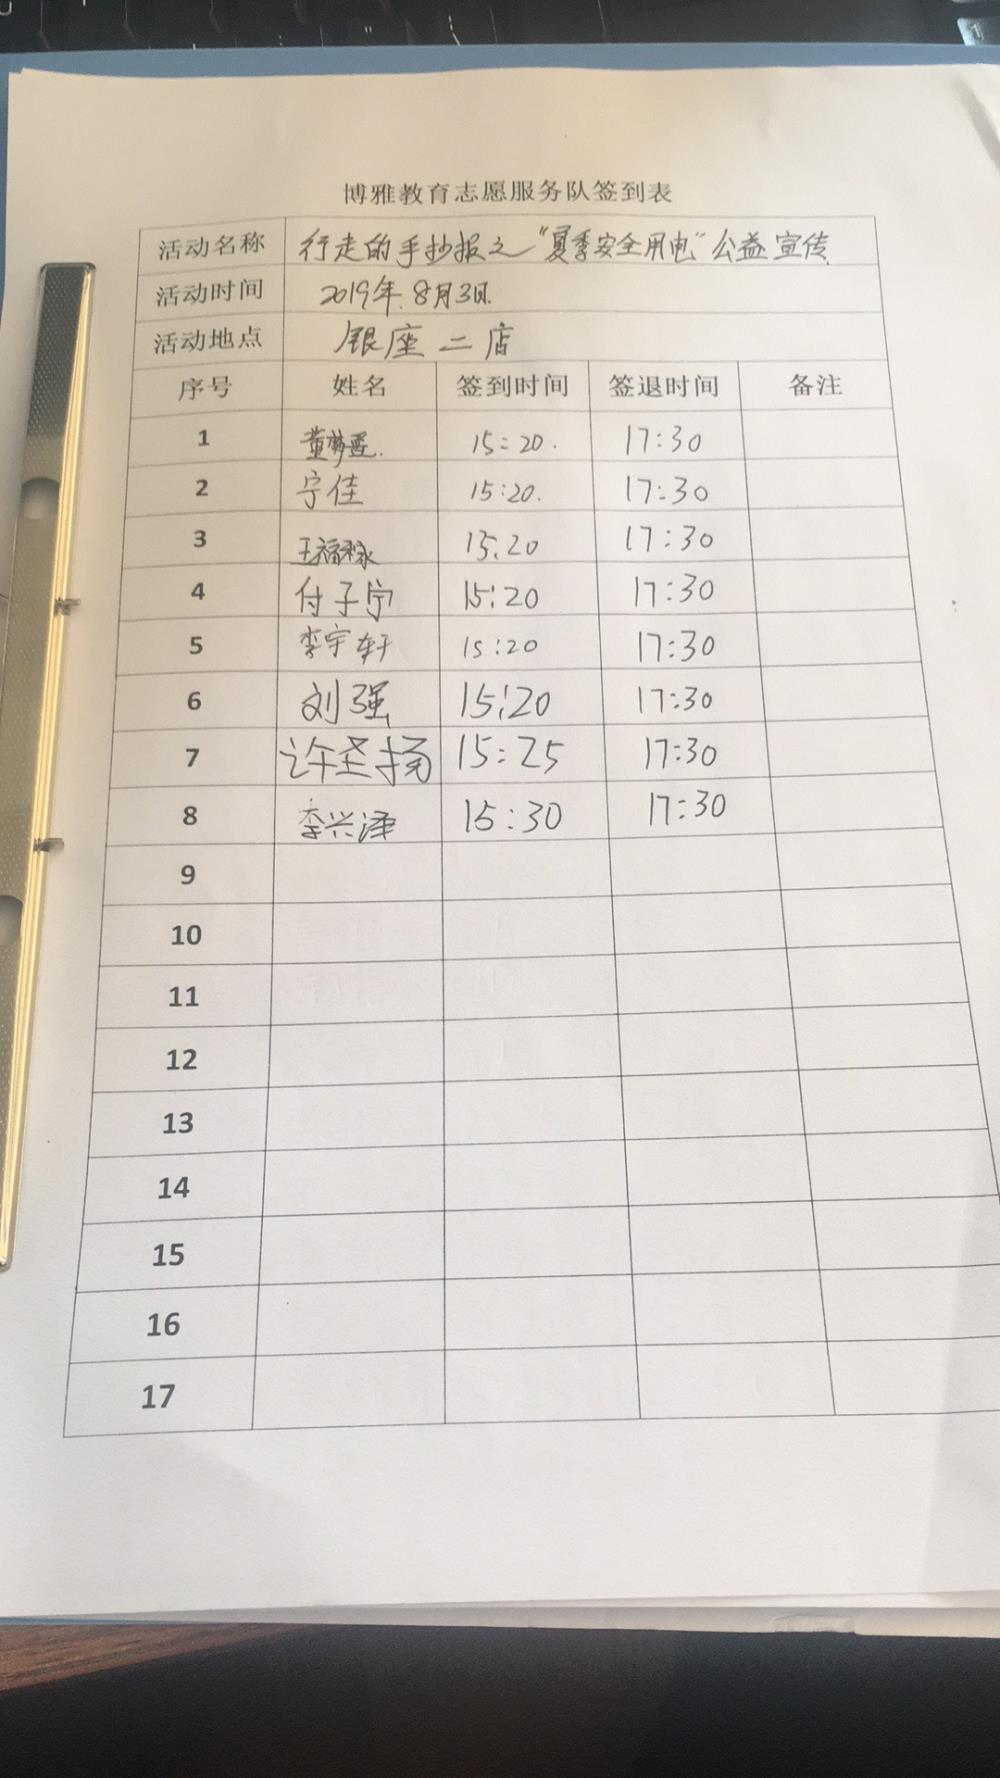 博雅教育志愿服务队签到表
活动名称 行走的手抄报之"夏季安全用电"公益宣传
活动时间 2019年.8月3日.
活动地点 银座二店
序号 姓名 签到时间 签退时间 备注
1 15:20. 17:30
2 宁佳 15:20. 17:30
3 15:20 17:30
4 付子宁 15:20 17:30
5 李宇轩 15:20 17:30
6 刘强 15:20 17:30
7 许圣扬 15:25 17:30
8 李兴泽 15:30 17:30
9
10
11
12
13
14
15
16
17